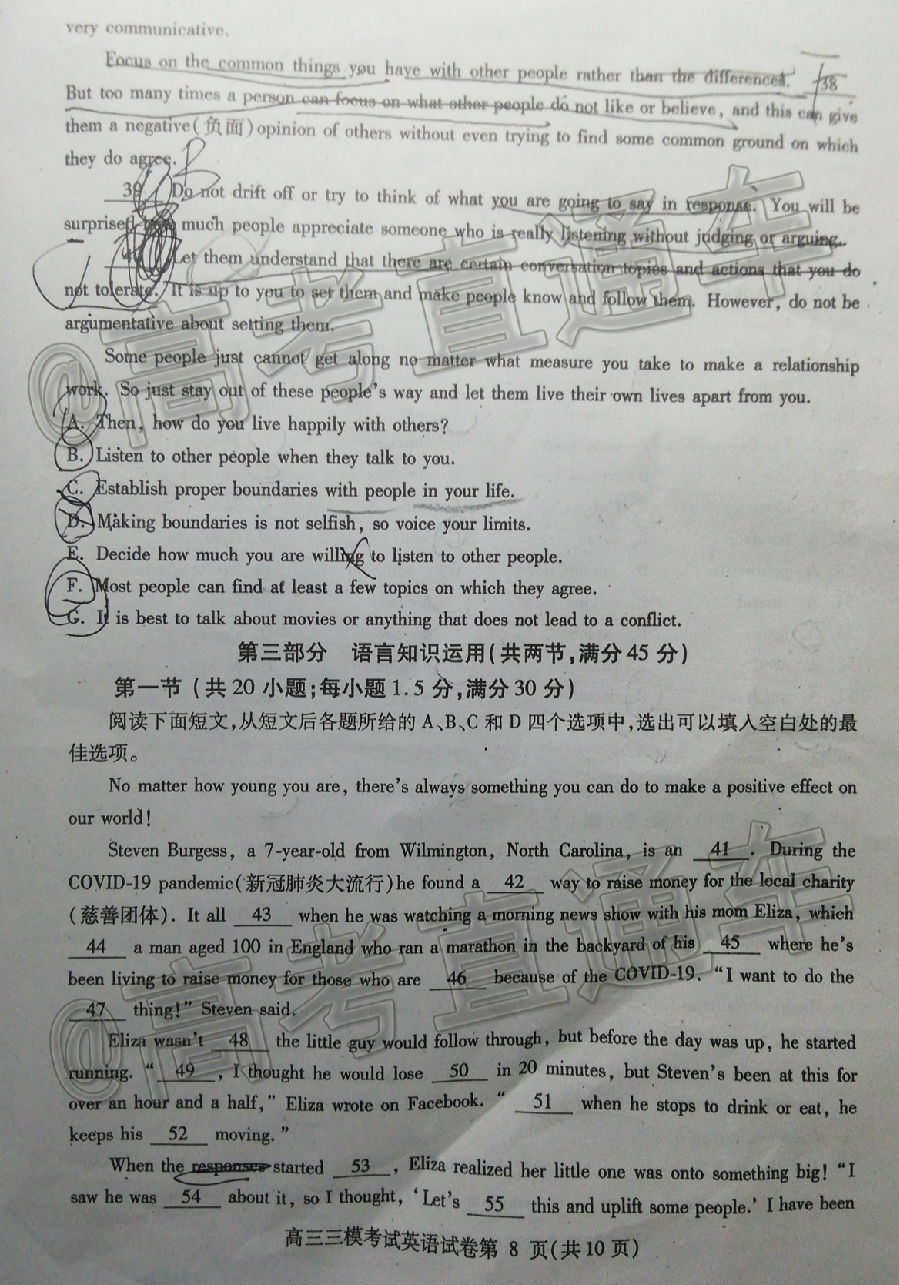 very communicative.
Focus on the common things you have with other people rather than the differences. 38
But too many times a person can focus on what other people do not like or believe, and this can give
them a negative(负面)opinion of others without even trying to find some common ground on which
they do agree. B
39 Do not drift off or try to think of what you are going to say in response. You will be
surprised much people appreciate someone who is really listening without judging or arguing.
Let them understand that there are certain conversation topics and actions that you do
not tolerate. It is up to you to set them and make people know and follow them. However, do not be
argumentative about setting them.
Some people just cannot get along no matter what measure you take to make a relationship
work. So just stay out of these people's way and let them live their own lives apart from you.
A. Then, how do you live happily with others?
B. Listen to other people when they talk to you.
C. Establish proper boundaries with people in your life.
D. Making boundaries is not selfish, so voice your limits.
E. Decide how much you are willing to listen to other people.
F. Most people can find at least a few topics on which they agree.
G. It is best to talk about movies or anything that does not lead to a conflict.
第三部分 语言知识运用(共两节,满分45分)
第一节 (共20小题;每小题1.5分,满分30分)
阅读下面短文,从短文后各题所给的A、B、C和D四个选项中,选出可以填入空白处的最
佳选项。
No matter how young you are, there's always something you can do to make a positive effect on
our world!
Steven Burgess, a 7-year-old from Wilmington, North Carolina, is an 41 . During the
COVID-19 pandemic(新冠肺炎大流行)he found a 42 way to raise money for the local charity
(慈善团体). It all 43 when he was watching a morning news show with his mom Eliza, which
44 a man aged 100 in England who ran a marathon in the backyard of his 45 where he's
been living to raise money for those who are 46 because of the COVID-19. "I want to do the
47 thing!" Steven said.
Eliza wasn't 48 the little guy would follow through, but before the day was up, he started
running. " 49 , I thought he would lose 50 in 20 minutes, but Steven's been at this for
over an hour and a half," Eliza wrote on Facebook. " 51 when he stops to drink or eat, he
keeps his 52 moving."
When the responses started 53 , Eliza realized her little one was onto something big! "I
saw he was 54 about it, so I thought, 'Let's 55 this and uplift some people.' I have been
高三三模考试英语试卷第 8 页(共10页)
@高考直通车
@高考直通车